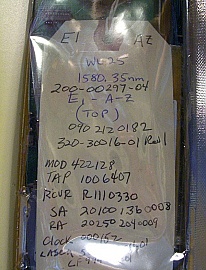 E1 AZ
WL 25
1580.35nm
200-00297-04
E1 - A-Z
(TOP)
090 212 0182
320-30016-01 Rev 1
MOD 422128
TAP 1006407
RCVR R1110330
SA 20100136 0008
RA 20250 204 0009
Clock 000162
LASER